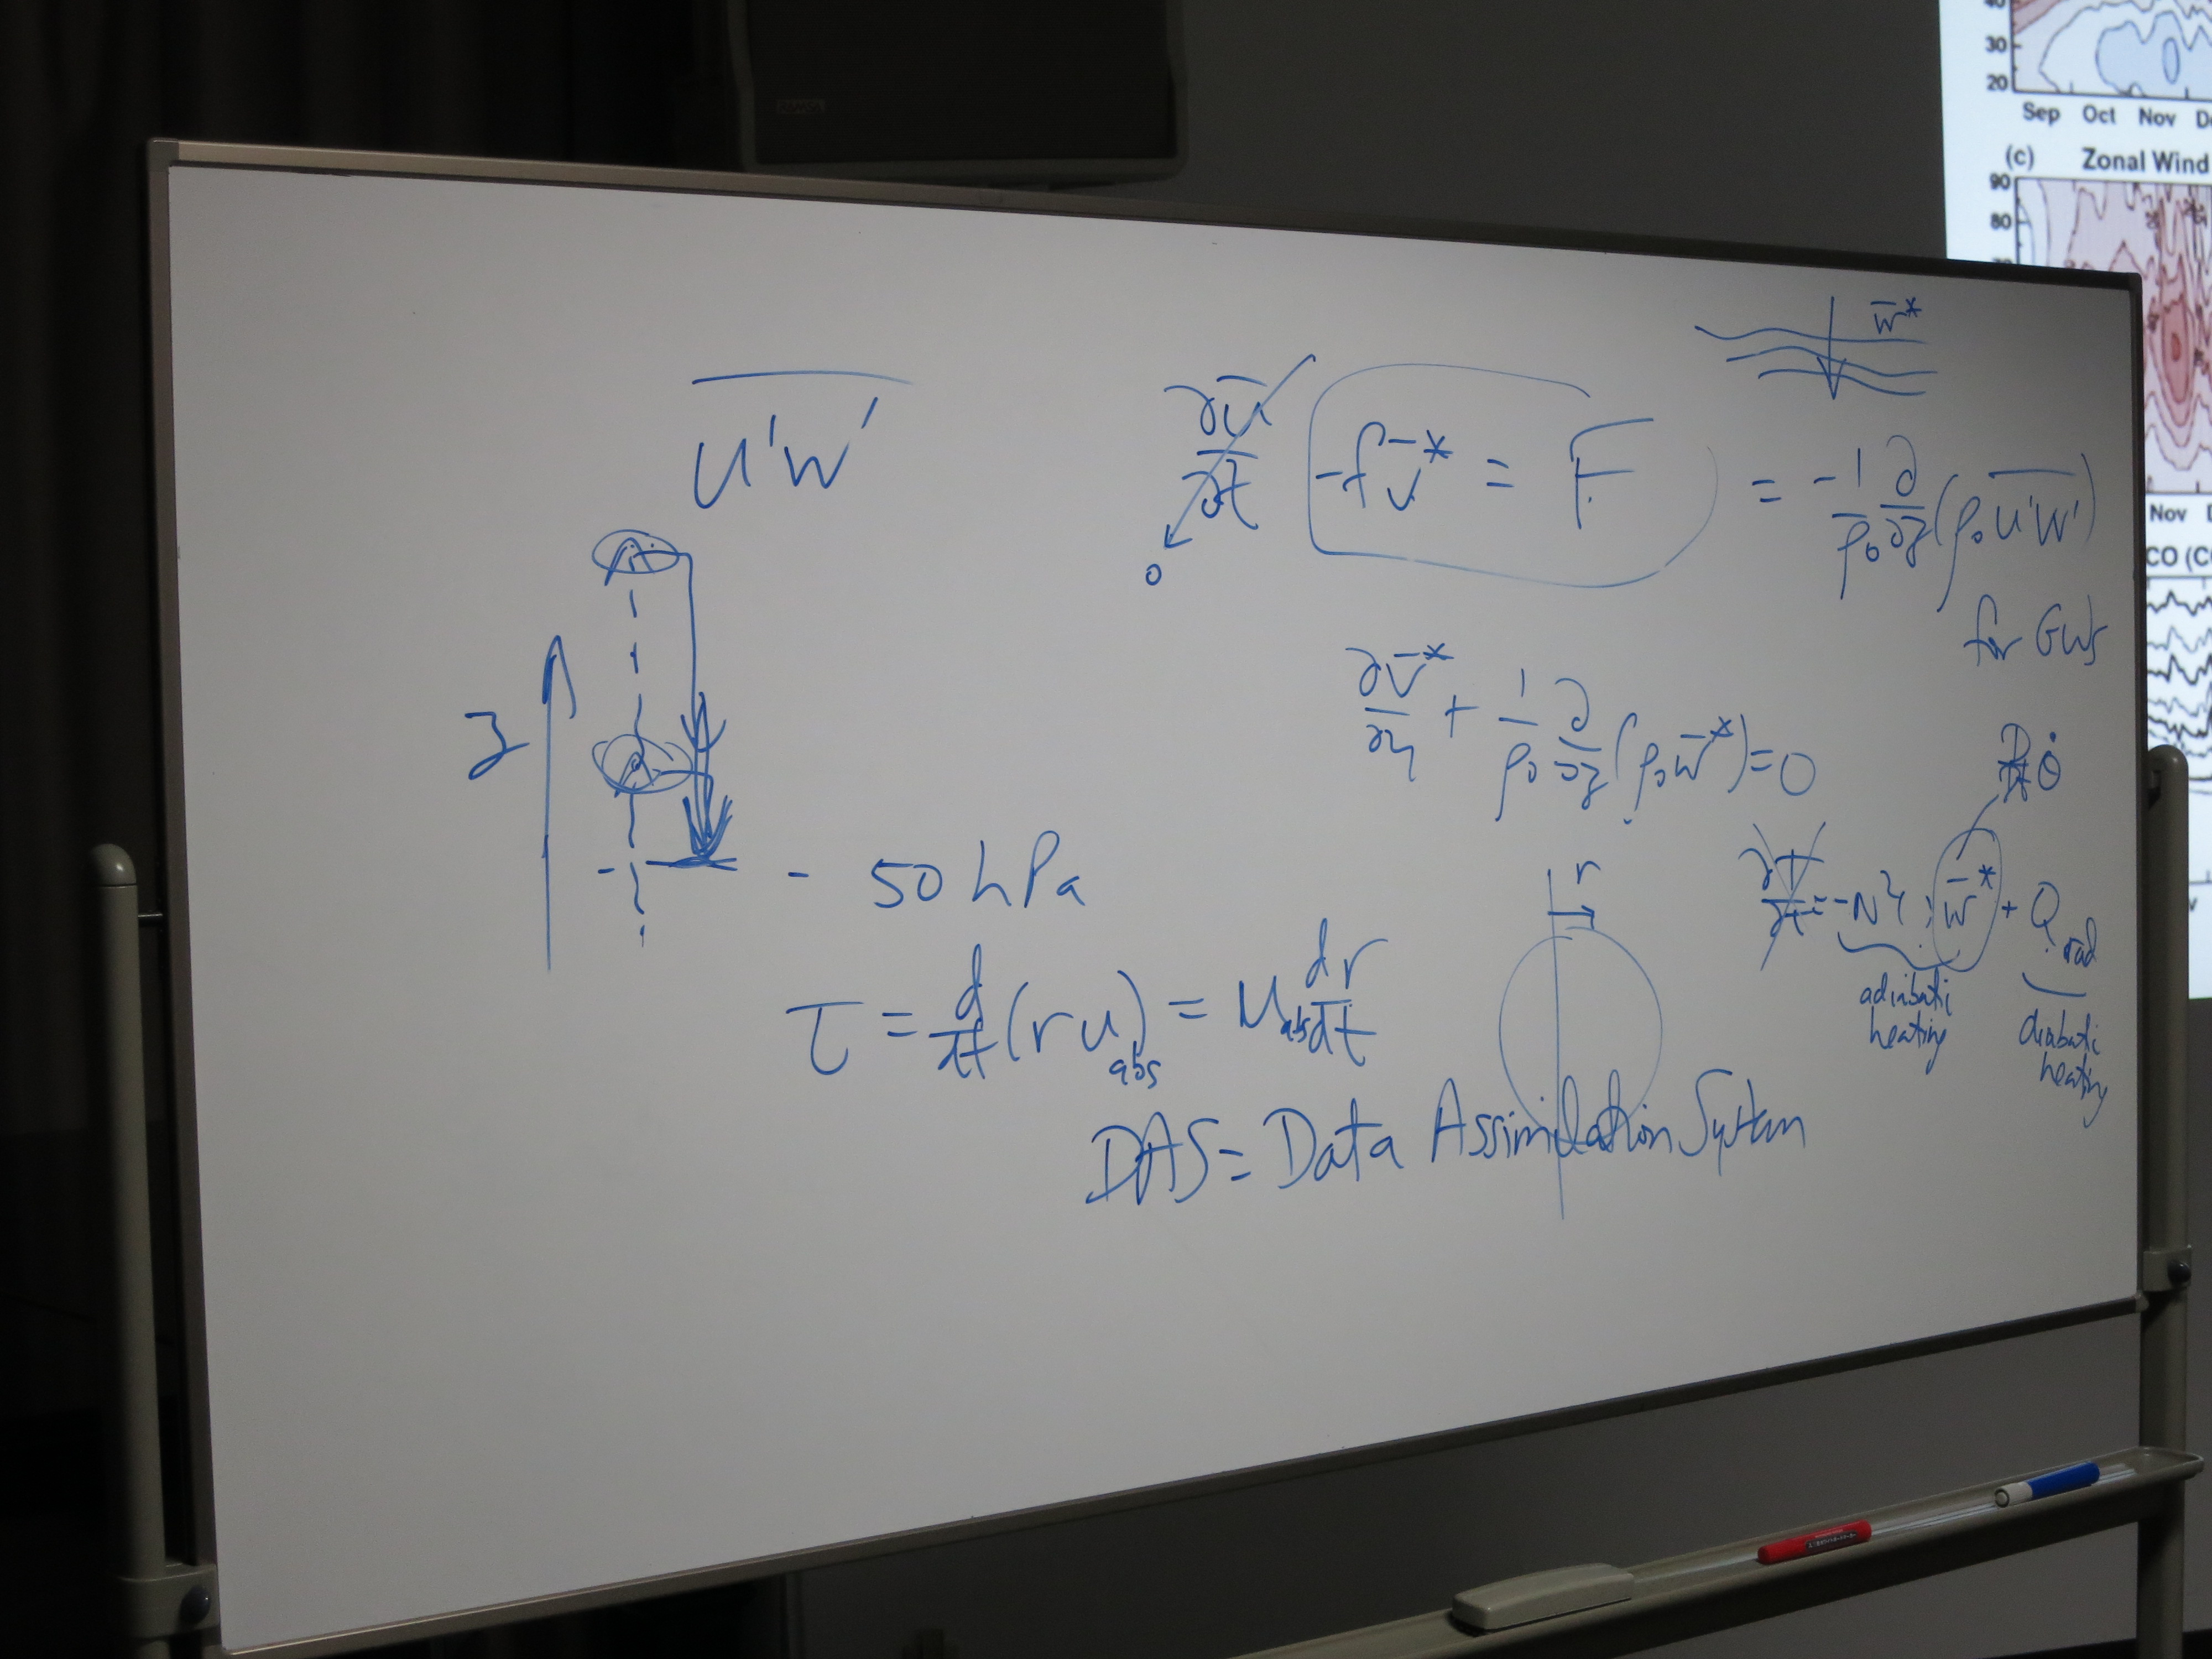 RAMSA
40
30
20
Sep Oct Nov
(c) Zonal Wind
90
80
Nov
CO
w̄*
u'w'
∂ū/∂t -fv̄* = F̄ = -1/ρ₀ ∂/∂z (ρ₀ u'w')
0
for GWs
z
∂v̄*/∂y + 1/ρ₀ ∂/∂z (ρ₀ w̄*) = 0
- 50 hPa
r
∂T/∂t = -N² w̄* + Q rad
adiabati
heating
diabati
heating
τ = d/dt (r u abs) = u abs dr/dt
DAS = Data Assimilation System